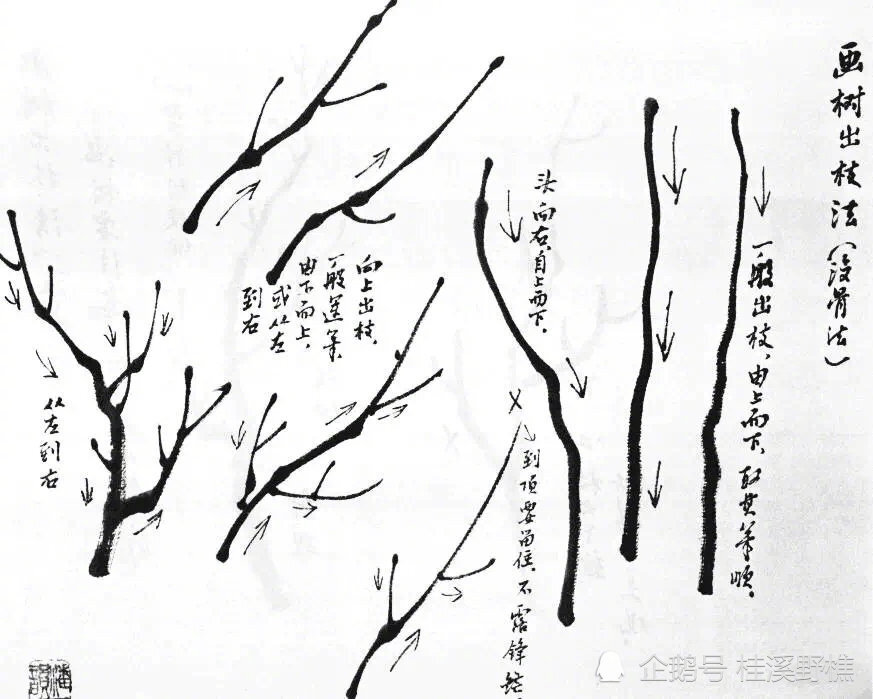 画树出枝法(没骨法)
一般出枝、由上而下、取其笔顺.
头向右、自上而下、
到顶要留住、不露锋
向上出枝、
一般运笔、
由下而上、
或从左
到右
从左到右
企鹅号 桂溪野樵